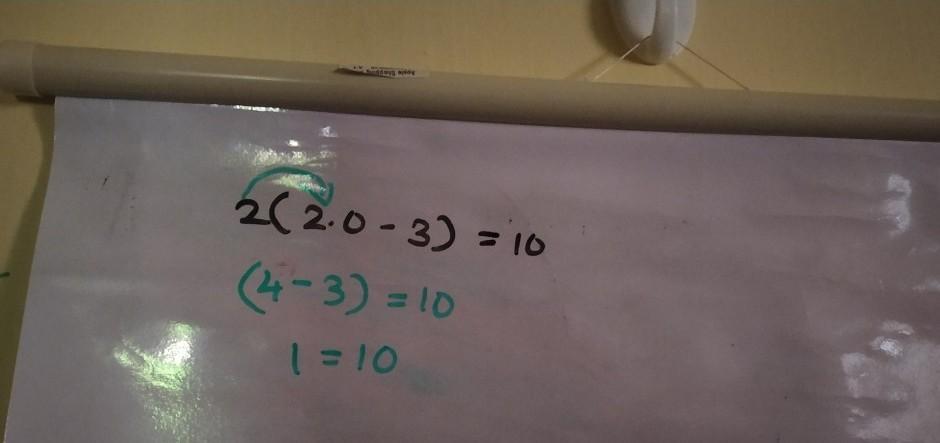 2(2.0-3) = 10
(4-3) = 10
1 = 10